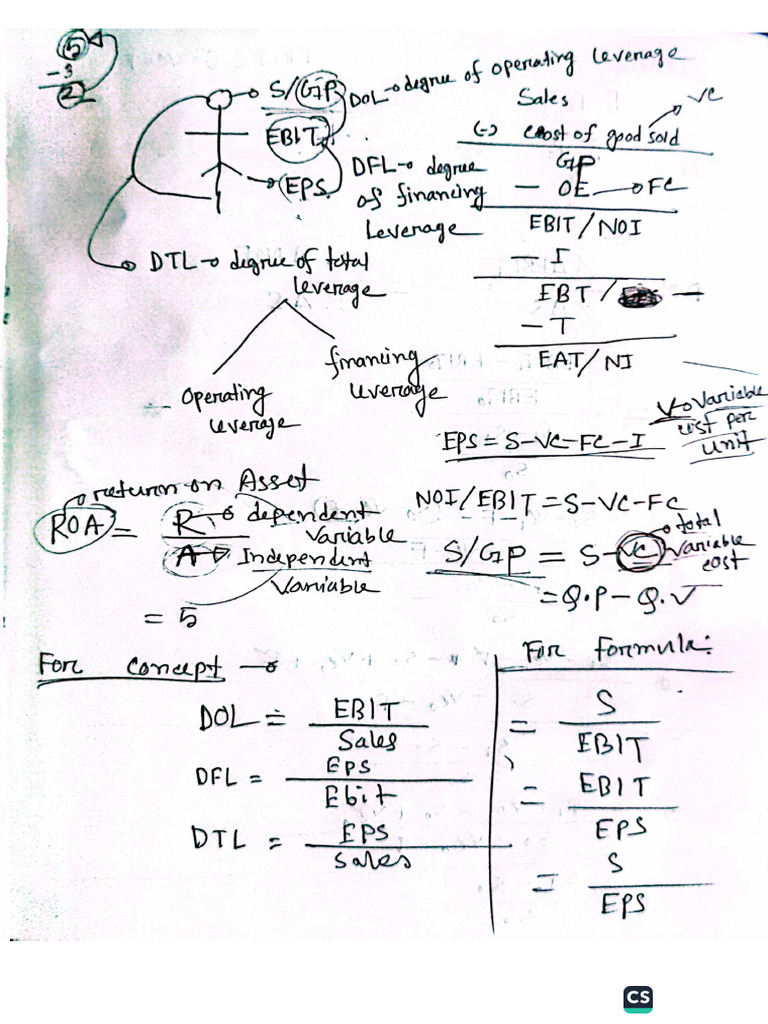 5
-3
2
S/GP
DOL → degree of operating leverage
EBIT
EPS
DFL → degree
of financing
leverage
DTL → degree of total
leverage
Operating
leverage
financing
leverage
Sales
VC
(-) cost of good sold
GP
- OE → FC
EBIT/NOI
- I
EBT/
- T
EAT/NI
V → Variable
cost per
unit
EPS = S-VC-FC-I
NOI/EBIT = S-VC-FC
S/GP = S-VC
total
variable
cost
= Q.P - Q.V
return on Asset
ROA = R / A
dependent
variable
Independent
variable
= 5
For concept →
DOL = EBIT / Sales
DFL = EPS / Ebit
DTL = EPS / Sales
For formula:
= S / EBIT
= EBIT / EPS
= S / EPS
CS